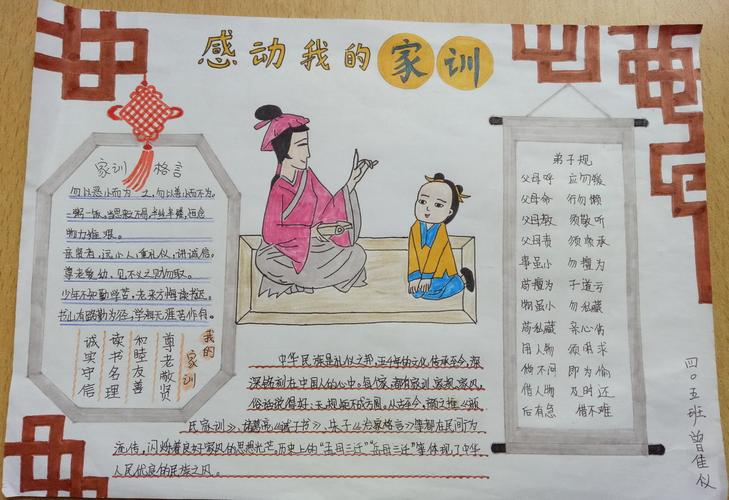 感动我的家训
家训 格言
勿以恶小而为之，勿以善小而不为。
一粥一饭，当思来处不易，半丝半缕，恒念
物力维艰。
亲贤者，远小人，重礼仪，讲诚信。
尊老爱幼，见不义之财勿取。
少年不知勤学苦，老来方悔读书迟。
书山有路勤为径，学海无涯苦作舟。
我的家训
尊老敬贤
和睦友善
读书名理
诚实守信
弟子规
父母呼 应勿缓
父母命 行勿懒
父母教 须敬听
父母责 须顺承
事虽小 勿擅为
苟擅为 子道亏
物虽小 勿私藏
苟私藏 亲心伤
用人物 须明求
倘不问 即为偷
借人物 及时还
后有急 借不难
中华民族是礼仪之邦，五千年的文化传承至今，深
深镌刻在中国人的心中。每个家，都有家训、家规、家风。
俗话说得好：无规矩不成方圆。从古至今，
民家训》、诸葛亮《诫子书》、朱子《治家格言》等都在民间广为
流传，闪烁着良好家风的思想光芒。历史上的“孟母三迁”“岳母三迁”等体现了中华
人民优良的民族之风。
四〇五班 曾佳仪